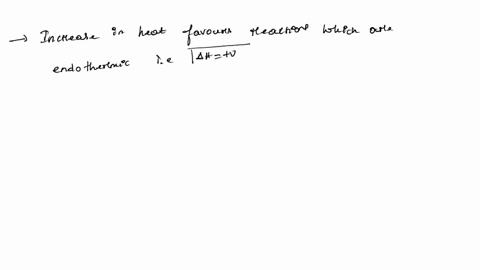 → Increase in heat favours reactions which are
endothermic i.e |ΔH=+v